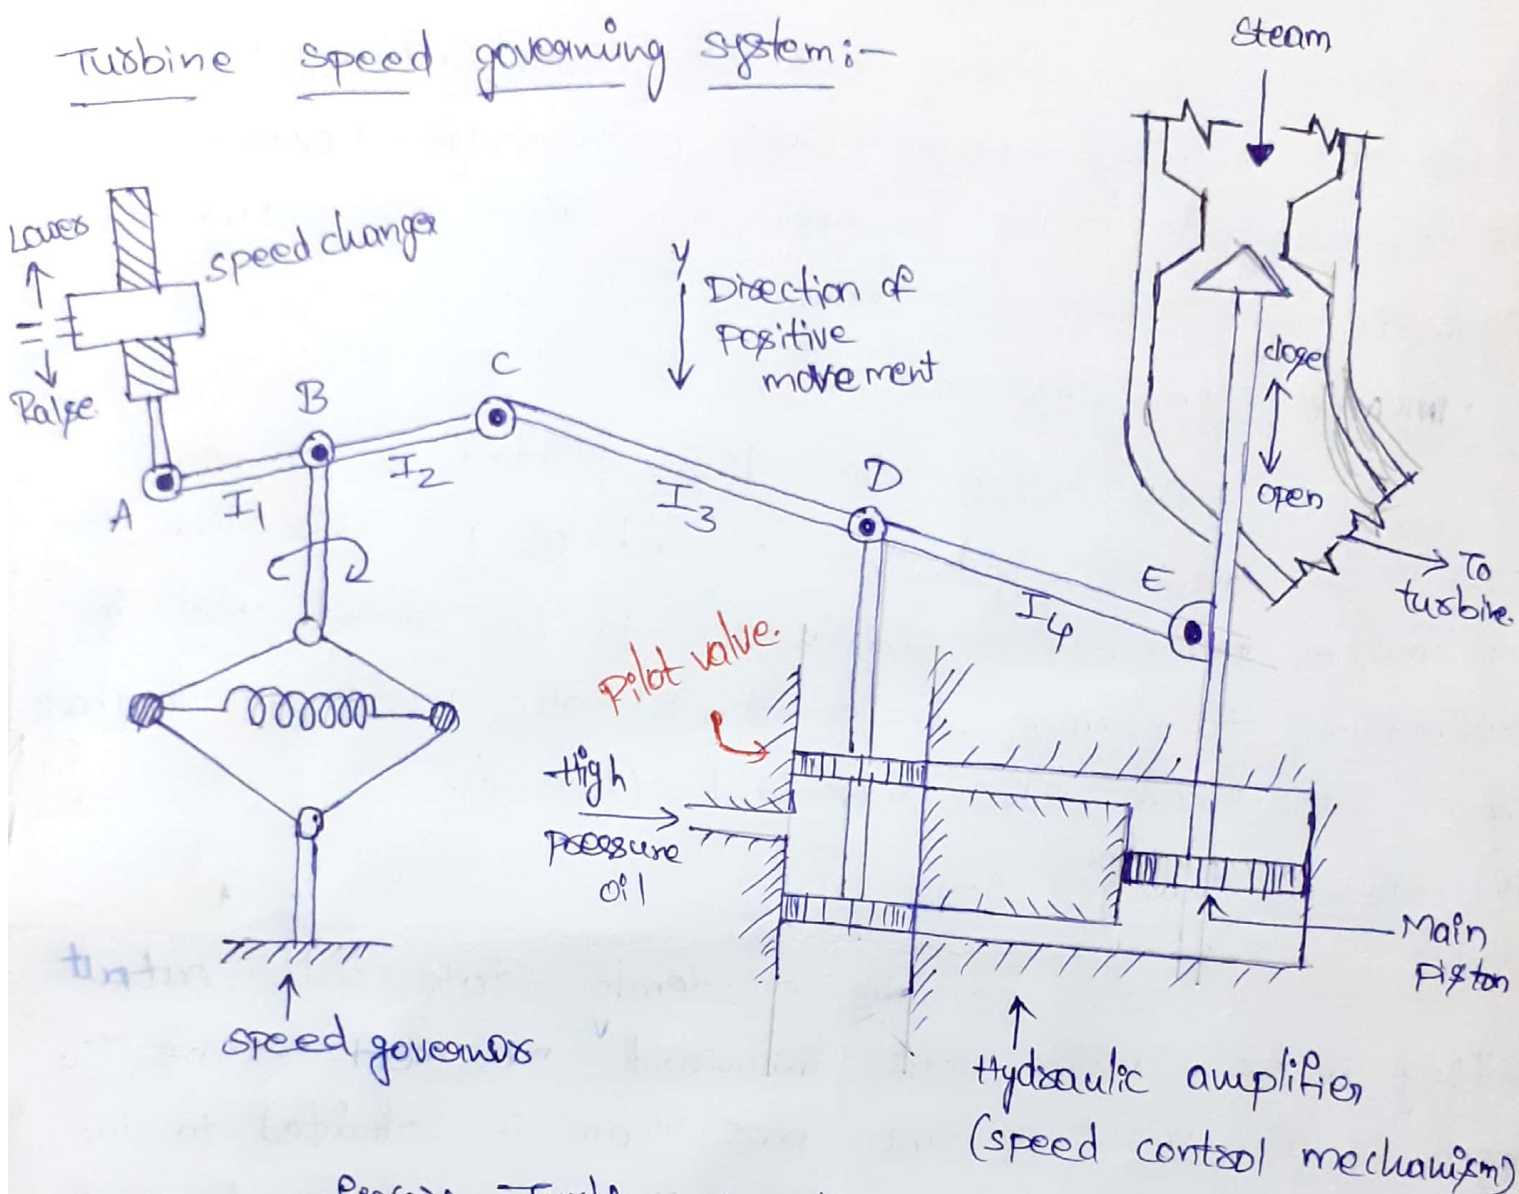 Turbine speed governing system:-
Steam
Lower
speed changer
Raise
Y
Direction of
positive
movement
close
open
A
B
C
D
E
I1
I2
I3
I4
To
turbine.
pilot valve.
High
pressure
oil
Main
piston
speed governor
Hydraulic amplifier
(speed control mechanism)